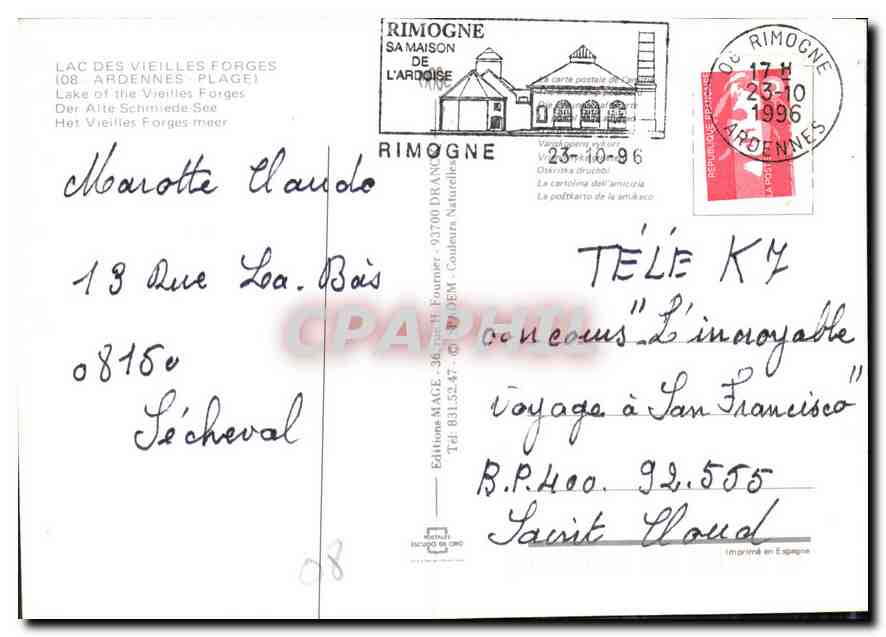 LAC DES VIEILLES FORGES
(08 ARDENNES - PLAGE)
Lake of the Vieilles Forges
Der Alte Schmiede-See
Het Vieilles Forges-meer
Marotte Claude
13 Rue La-Bas
08150
Sécheval
08
RIMOGNE
SA MAISON
DE
L'ARDOISE
RIMOGNE
23-10-96
08 RIMOGNE
17 H
23-10
1996
ARDENNES
REPUBLIQUE FRANÇAISE
LA POSTE
La carte postale de
Vänskapens vykort
Oskritka druchbi
La cartolina dell'amicizia
La poŝtkarto de la amikaco
Editions MAGE - 36, rue H. Fournier - 93700 DRANCY
Tél: 831.52.47 - © - Couleurs Naturelles
CPAPHIL
TÉLÉ K7
concours "L'incroyable
voyage à San Francisco"
B.P.400. 92.555
Saint Cloud
POSTALES
ESCUDO DE ORO
Imprimé en Espagne